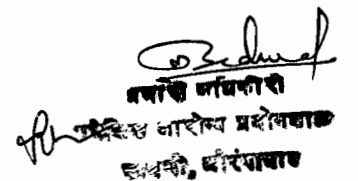 प्रभारी अधिकारी
आरोग्य प्रयोगशाळा
छावणी, औरंगाबाद